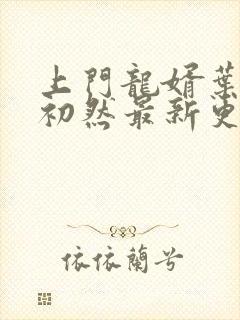 上門龍婿葉
初然最新更
依依蘭兮